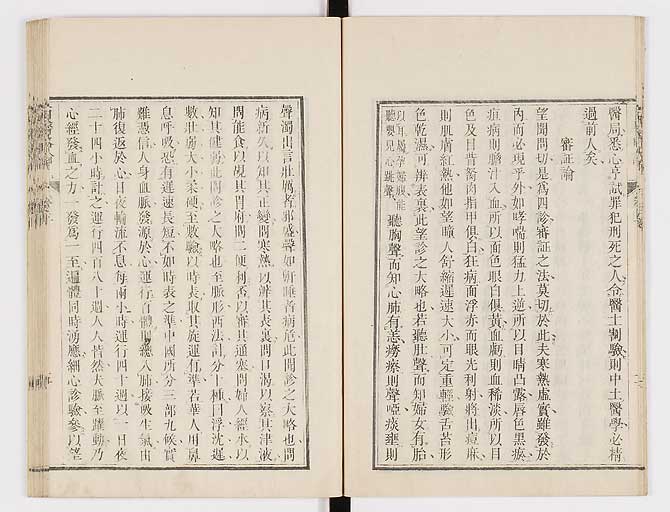 醫局悉心亭試罪犯刑死之人令醫士割驗則中土醫學必精
過前人矣
審証論
望聞問切是為四診審証之法莫切於此夫寒熱虛實雖發於
內而必現乎外如哮喘則猛力上逆所以目睛凸露唇色黑瘀
疸病則膽汁入血所以面色眼白俱黃血虧則血稀淡所以目
色及目胞唇肉指甲俱白狂病面浮赤而眼光利射將出痘麻
則肌膚紅熱他如望瞳人舒縮遲速大小可定重輕驗舌苔形
色乾濕可辨表裏此望診之大略也若聽肚聲而知婦女有胎
以耳屬孕婦腹能
聽嬰兒心跳聲
聽胸聲而知心肺有恙癆瘵則聲啞痰壅則
聲濁出言壯厲者邪盛聲如鼾睡者病危此聞診之大略也問
病新久以知其正變問寒熱以辨其表裏問口渴以察其津液
問能食以覘其胃府問二便利否以審其通塞問婦人經水以
知其健弱此問診之大略也至脈形西法計分十種曰浮沈遲
數壯弱大小柔硬至數驗以時表取其旋運有準若華人用鼻
息呼吸恐有遲速長短不如時表之準中國所分三部九候實
難憑信人身血脈發源於心運行百體則繞入肺接吸生氣由
肺復返於心日夜輪流不息每兩小時運行四十週以一日夜
二十四小時計之運行四百八十週人人皆然夫脈至躍動乃
心經發血之力一發為一至遍體同時湧應細心診驗參以望